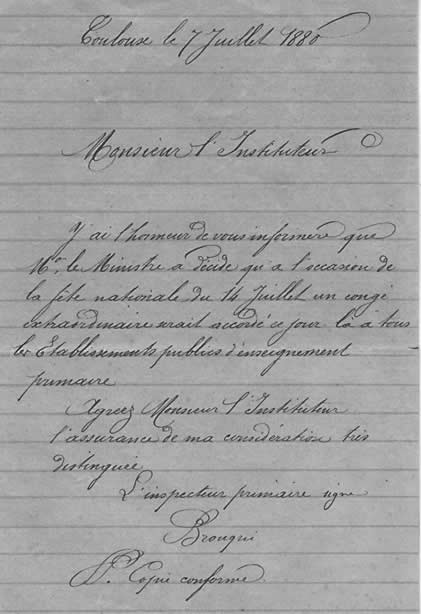 Toulouse le 7 Juillet 1880
Monsieur l'Instituteur
J'ai l'honneur de vous informer que
Mr. le Ministre a décidé qu'a l'occasion de
la fête nationale du 14 Juillet un congé
extraordinaire serait accordé ce jour là à tous
les Etablissements publics d'enseignement
primaire
Agreez Monsieur l'Instituteur
l'assurance de ma considération très
distinguée
L'inspecteur primaire signe
Copie conforme